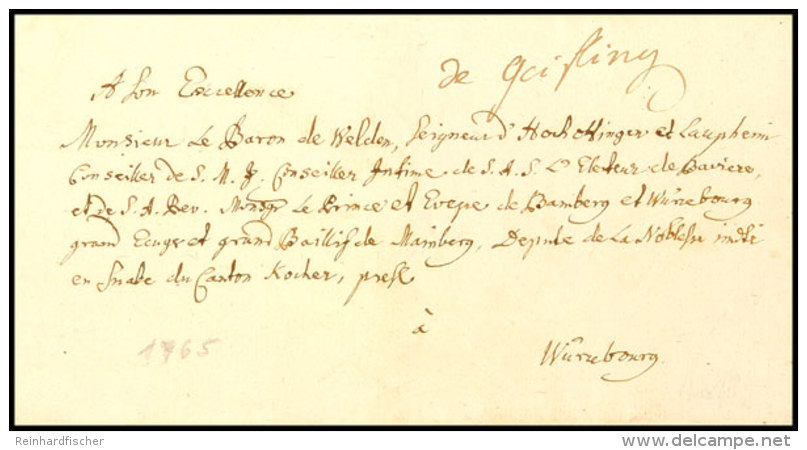 de Geisling
A son Excellence
Monsieur Le Baron de Welden, Seigneur d' Hochaltingen et Laupheim
Conseiller de S. M. J. Conseiller Intime de S. A. S. L' Electeur de Baviere,
et de S. A. Rev. Monsgr Le Prince et Eveque de Bamberg et Würzbourg
grand Ecuyer et grand Baillif de Mainberg, Depute de La Noblesse imdte
en Suabe du Canton Kocher, pres
à
Würzbourg
1765
Reinhardfischer
www.delcampe.net